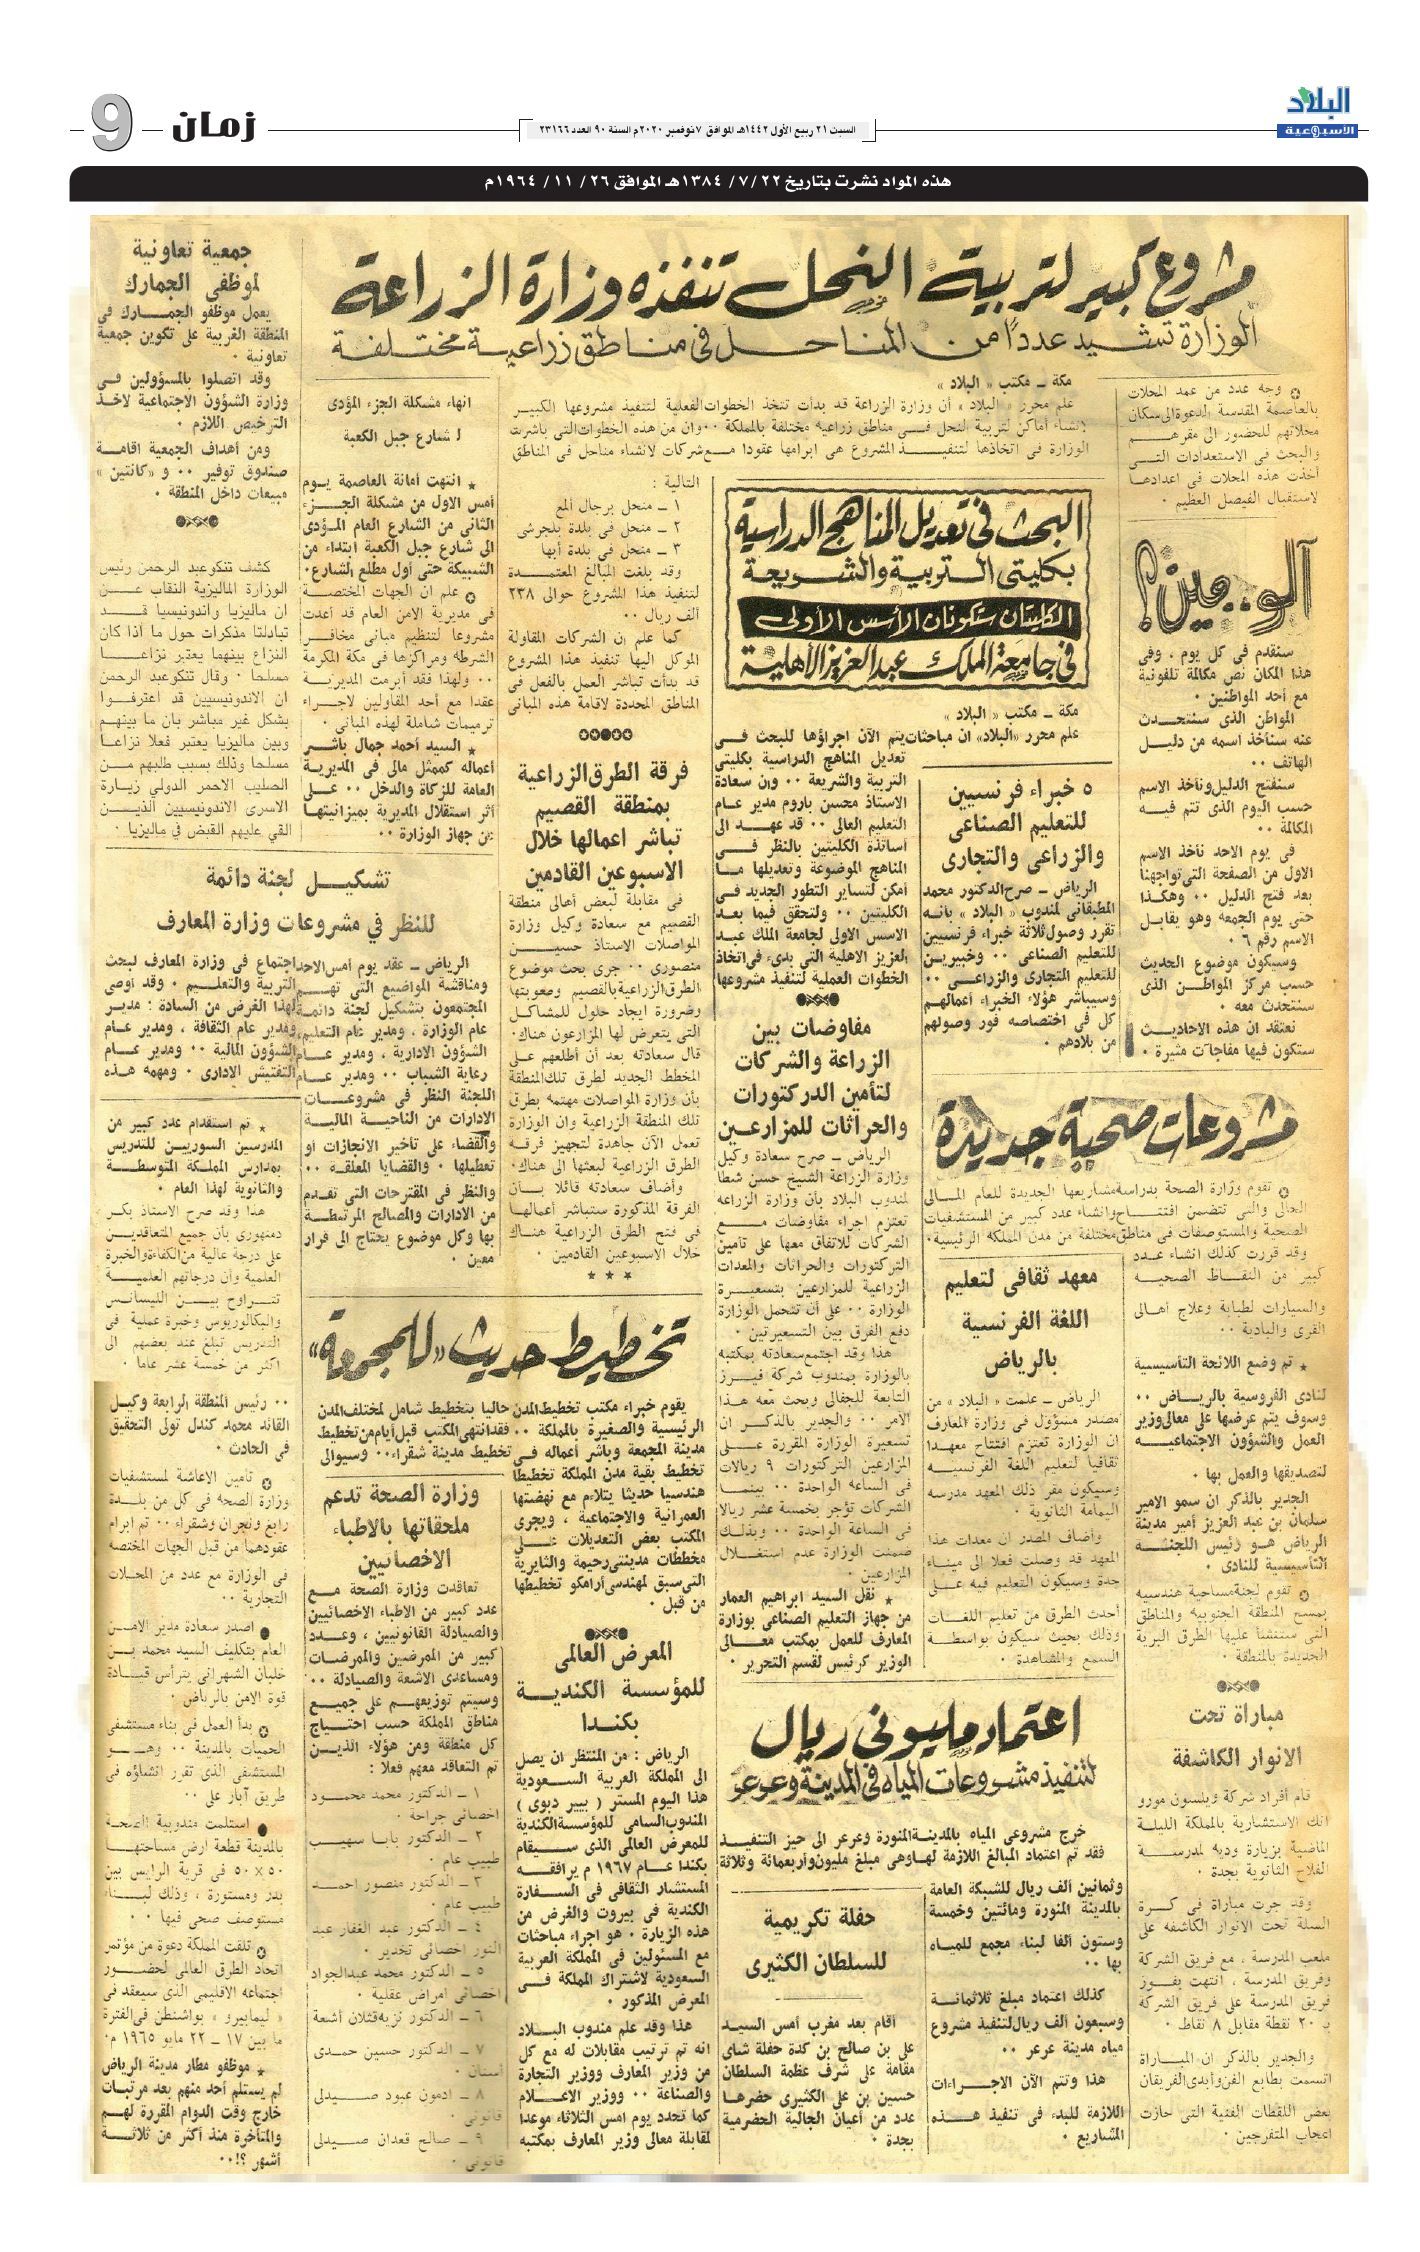 البلاد
الأسبوعية
السبت ٢١ ربيع الأول ١٤٤٢هـ الموافق ٧ نوفمبر ٢٠٢٠م السنة ٩٠ العدد ٢٣١٦٦
زمان
9
هذه المواد نشرت بتاريخ ٢٢ /٧/ ١٣٨٤هـ الموافق ٢٦/ ١١/ ١٩٦٤م
مشروع كبير لتربية النحل تنفذه وزارة الزراعة
الوزارة تشيد عدداً من المناحل في مناطق زراعية مختلفة
وجه عدد من عمد المحلات
بالعاصمة المقدسة الدعوة الى سكان
محلاتهم للحضور الى مقرهم
والبحث في الاستعدادات التي
أخذت هذه المحلات في اعدادها
لاستقبال الفيصل العظيم ٠
آلو.. مين؟
سنقدم في كل يوم ، وفي
هذا المكان نص مكالمة تلفونية
مع أحد المواطنين ٠
المواطن الذى سنتحدث
عنه سنأخذ اسمه من دليل
الهاتف ٠٠
سنفتح الدليل ونأخذ الاسم
حسب اليوم الذى تتم فيه
المكالمة ٠٠
في يوم الاحد نأخذ الاسم
الاول من الصفحة التي تواجهنا
بعد فتح الدليل ٠٠ وهكذا
حتى يوم الجمعه وهو يقابل
الاسم رقم ٦ ٠
وسيكون موضوع الحديث
حسب مركز المواطن الذى
سنتحدث معه ٠
نعتقد ان هذه الاحاديث
ستكون فيها مفاجآت مثيرة ٠
مكة ــ مكتب « البلاد »
علم محرر « البلاد » أن وزارة الزراعة قد بدأت تتخذ الخطوات الفعلية لتنفيذ مشروعها الكبير
بانشاء أماكن لتربية النحل في مناطق زراعيه مختلفة بالمملكة ٠٠ وان من هذه الخطوات التي باشرت
الوزارة في اتخاذها لتنفيذ المشروع هي ابرامها عقودا مع شركات لانشاء مناحل في المناطق
التالية :
١ ــ منحل برجال المع
٢ ــ منحل في بلدة بلجرشي
٣ ــ منحل في بلدة أبها
وقد بلغت المبالغ المعتمدة
لتنفيذ هذا المشروع حوالى ٢٣٨
ألف ريال ٠٠
كما علم ان الشركات المقاولة
الموكل اليها تنفيذ هذا المشروع
قد بدأت تباشر العمل بالفعل في
المناطق المحددة لاقامة هذه المباني
البحث في تعديل المناهج الدراسية
بكليتي التربية والشريعة
الكليتان ستكونان الأسس الأولى
في جامعة الملك عبد العزيز الأهلية
مكة ــ مكتب « البلاد »
علم محرر «البلاد» ان مباحثات يتم الآن اجراؤها للبحث في
تعديل المناهج الدراسية بكليتي
التربية والشريعة ٠٠ وان سعادة
الاستاذ محسن باروم مدير عام
التعليم العالى ٠٠ قد عهد الى
أساتذة الكليتين بالنظر في
المناهج الموضوعة وتعديلها ما
أمكن لتساير التطور الجديد في
الكليتين ٠٠ ولتحقق فيما بعد
الاسس الاولى لجامعة الملك عبد
العزيز الاهلية التي بدىء في اتخاذ
الخطوات العملية لتنفيذ مشروعها
٥ خبراء فرنسيين
للتعليم الصناعى
والزراعى والتجارى
الرياض ــ صرح الدكتور محمد
المطبقاني لمندوب « البلاد » بانه
تقرر وصول ثلاثة خبراء فرنسيين
للتعليم الصناعى ٠٠ وخبيرين
للتعليم التجارى والزراعى ٠٠
وسيباشر هؤلاء الخبراء أعمالهم
كل في اختصاصه فور وصولهم
من بلادهم ٠
مفاوضات بين
الزراعة والشركات
لتأمين الدركتورات
والحراثات للمزارعين
الرياض ــ صرح سعادة وكيل
وزارة الزراعة الشيخ حسن شطا
لمندوب البلاد بأن وزارة الزراعه
تعتزم اجراء مفاوضات مع
الشركات للاتفاق معها على تأمين
التركتورات والحراثات والمعدات
الزراعية للمزارعين بتسعيرة
الوزارة ٠٠ على أن تتحمل الوزارة
دفع الفرق بين التسعيرتين ٠
هذا وقد اجتمع سعادته بمكتبه
بالوزارة بمندوب شركة فيرز
التابعة للجفالى وبحث معه هذا
الأمر ٠٠ والجدير بالذكر ان
تسعيرة الوزارة المقررة على
المزارعين التركتورات ٩ ريالات
في الساعه الواحدة ٠٠ بينما
الشركات تؤجر بخمسة عشر ريالا
في الساعة الواحدة ٠٠ وبذلك
ضمنت الوزارة عدم استغلال
المزارعين ٠
نقل السيد ابراهيم العمار
من جهاز التعليم الصناعى بوزارة
المعارف للعمل بمكتب معالى
الوزير كرئيس لقسم التحرير ٠
مشروعات صحية جديدة
تقوم وزارة الصحة بدراسة مشاريعها الجديدة للعام المالى
الحالى والتي تتضمن افتتاح وانشاء عدد كبير من المستشفيات
الصحية والمستوصفات في مناطق مختلفة من مدن المملكة الرئيسية٠
وقد قررت كذلك انشاء عدد
كبير من النقاط الصحيه
والسيارات لطبابة وعلاج أهالى
القرى والبادية ٠٠
تم وضع اللائحة التأسيسية
لنادى الفروسية بالرياض ٠٠
وسوف يتم عرضها على معالى وزير
العمل والشؤون الاجتماعيه
لتصديقها والعمل بها ٠
الجدير بالذكر ان سمو الامير
سلمان بن عبد العزيز أمير مدينة
الرياض هو رئيس اللجنه
التأسيسية للنادى ٠
تقوم لجنة مساحية هندسيه
بمسح المنطقة الجنوبية والمناطق
التي ستنشأ عليها الطرق البرية
الجديدة بالمنطقة ٠
معهد ثقافى لتعليم
اللغة الفرنسية
بالرياض
الرياض ــ علمت « البلاد » من
مصدر مسؤول في وزارة المعارف
ان الوزارة تعتزم افتتاح معهدا
ثقافيا لتعليم اللغة الفرنسيه
وسيكون مقر ذلك المعهد مدرسه
اليمامة الثانوية ٠
وأضاف المصدر ان معدات هذا
المعهد قد وصلت فعلا الى ميناء
جدة وسيكون التعليم فيه على
أحدث الطرق من تعليم اللغات
وذلك بحيث سيكون بواسطة
السمع والمشاهدة ٠
مباراة تحت
الانوار الكاشفة
قام أفراد شركة ويلسون مورو
الماضية بزيارة وديه لمدرسة
الفلاح الثانوية بجدة ٠
وقد جرت مباراة في كرة
السلة تحت الانوار الكاشفه على
ملعب المدرسة ، مع فريق الشركة
وفريق المدرسة ، انتهت بفوز
فريق المدرسة على فريق الشركة
بـ ٢٠ نقطة مقابل ٨ نقاط ٠
والجدير بالذكر ان المباراة
اتسمت بطابع الفن وأبدى الفريقان
بعض اللقطات الفنية التي حازت
اعجاب المتفرجين ٠
اعتماد مليوني ريال
لتنفيذ مشروعات المياه في المدينة وعرعر
خرج مشروعى المياه بالمدينة المنورة وعرعر الى حيز التنفيذ
فقد تم اعتماد المبالغ اللازمة لها وهى مبلغ مليون وأربعمائة وثلاثة
وثمانين ألف ريال للشبكة العامة
بالمدينة المنورة ومائتين وخمسة
وستون ألفا لبناء مجمع للمياه
بها ٠٠
كذلك اعتماد مبلغ ثلاثمائة
وسبعون ألف ريال لتنفيذ مشروع
مياه مدينة عرعر ٠٠
هذا وتتم الآن الاجراءات
اللازمة للبدء في تنفيذ هذه
المشاريع ٠
حفلة تكريمية
للسلطان الكثيرى
أقام بعد مغرب أمس السيد
على بن صالح بن كدة حفلة شاى
مقامة على شرف عظمة السلطان
حسين بن على الكثيرى حضرها
عدد من أعيان الجالية الحضرمية
بجدة ٠
فرقة الطرق الزراعية
بمنطقة القصيم
تباشر اعمالها خلال
الاسبوعين القادمين
في مقابلة لبعض أهالى منطقة
القصيم مع سعادة وكيل وزارة
المواصلات الاستاذ حسين
منصورى ٠٠ جرى بحث موضوع
الطرق الزراعية بالقصيم وصعوبتها
وضرورة ايجاد حلول للمشاكل
التي يتعرض لها المزارعون هناك٠
قال سعادته بعد أن أطلعهم على
المخطط الجديد لطرق تلك المنطقة
بأن وزارة المواصلات مهتمه بطرق
تلك المنطقة الزراعية وان الوزارة
تعمل الآن جاهدة لتجهيز فرقة
الطرق الزراعية لبعثها الى هناك٠
وأضاف سعادته قائلا بأن
الفرقة المذكورة ستباشر أعمالها
في فتح الطرق الزراعية هناك
خلال الاسبوعين القادمين ٠
تخطيط حديث «للمجمعة»
يقوم خبراء مكتب تخطيط المدن حاليا بتخطيط شامل لمختلف المدن
الرئيسية والصغيرة بالمملكة ٠٠ فقد انتهى المكتب قبل أيام من تخطيط
مدينة المجمعة وباشر أعماله في تخطيط مدينة شقراء٠٠ وسيوالى
تخطيط بقية مدن المملكة تخطيطا
هندسيا حديثا يتلاءم مع نهضتها
العمرانية والاجتماعية ، ويجرى
المكتب بعض التعديلات على
مخططات مدينتي رحيمة والثايرية
التي سبق لمهندسى أرامكو تخطيطها
من قبل ٠
المعرض العالمى
للمؤسسة الكندية
بكندا
الرياض : من المنتظر ان يصل
الى المملكة العربية السعودية
هذا اليوم المستر ( بيير ديوى )
المندوب السامى للمؤسسة الكندية
للمعرض العالمى الذى سيقام
بكندا عام ١٩٦٧ م يرافقه
المستشار الثقافى في السفارة
الكندية في بيروت والغرض من
هذه الزيارة ٠ هو اجراء مباحثات
مع المسئولين في المملكة العربية
السعودية لاشتراك المملكة في
المعرض المذكور ٠
هذا وقد علم مندوب البلاد
انه تم ترتيب مقابلات له مع كل
من وزير المعارف ووزير التجارة
والصناعة ٠٠ ووزير الاعلام
كما تحدد يوم امس الثلاثاء موعدا
لمقابلة معالى وزير المعارف بمكتبه
انهاء مشكلة الجزء المؤدى
لشارع جبل الكعبة
انتهت أمانة العاصمة يوم
أمس الاول من مشكلة الجزء
الثانى من الشارع العام المؤدى
الى شارع جبل الكعبة ابتداء من
الشبيكة حتى أول مطلع الشارع٠
علم ان الجهات المختصة
في مديرية الامن العام قد أعدت
مشروعا لتنظيم مبانى مخافر
الشرطه ومراكزها في مكة المكرمة
٠٠ ولهذا فقد أبرمت المديرية
عقدا مع أحد المقاولين لاجراء
ترميمات شاملة لهذه المبانى ٠
السيد أحمد جمال باشر
أعماله كممثل مالى في المديرية
العامة للزكاة والدخل ٠٠ على
أثر استقلال المديرية بميزانيتها
عن جهاز الوزارة ٠٠
تشكيل لجنة دائمة
للنظر في مشروعات وزارة المعارف
الرياض ــ عقد يوم أمس الاحد اجتماع في وزارة المعارف لبحث
ومناقشة المواضيع التي تهم التربية والتعليم ٠ وقد أوصى
المجتمعون بتشكيل لجنة دائمة لهذا الغرض من السادة : مدير
عام الوزارة ، ومدير عام التعليم ومدير عام الثقافة ، ومدير عام
الشؤون الادارية ، ومدير عام الشؤون المالية ٠٠ ومدير عام
رعاية الشباب ٠٠ ومدير عام التفتيش الادارى ٠ ومهمه هذه
اللجنة النظر في مشروعات
الادارات من الناحية المالية
والقضاء على تأخير الانجازات او
تعطيلها ٠ والقضايا المعلقة ٠٠
والنظر في المقترحات التي تقدم
من الادارات والمصالح المرتبطة
بها وكل موضوع يحتاج الى قرار
معين ٠
وزارة الصحة تدعم
ملحقاتها بالاطباء
الاخصائيين
تعاقدت وزارة الصحة مع
عدد كبير من الاطباء الاخصائيين
والصيادلة القانونيين ، وعدد
كبير من الممرضين والممرضات
ومساعدى الاشعة والصيادلة ٠٠
وسيتم توزيعهم على جميع
مناطق المملكة حسب احتياج
كل منطقة ومن هؤلاء الذين
تم التعاقد معهم فعلا :
١ ــ الدكتور محمد محمود
اخصائى جراحة ٠
٢ ــ الدكتور بابا سهيب
طبيب عام ٠
٣ ــ الدكتور منصور احمد
طبيب عام ٠
٤ ــ الدكتور عبد الغفار عبد
النور اخصائى تخدير ٠
٥ ــ الدكتور محمد عبدالجواد
اخصائى امراض عقلية ٠
٦ ــ الدكتور نزيه قثلان أشعة
٧ ــ الدكتور حسين حمدى
أسنان ٠
٨ ــ ادمون عبود صيدلى
قانونى ٠
٩ ــ صالح قعدان صيدلى
قانونى ٠
جمعية تعاونية
لموظفى الجمارك
يعمل موظفو الجمارك في
المنطقة الغربية على تكوين جمعية
تعاونية ٠
وقد اتصلوا بالمسؤولين في
وزارة الشؤون الاجتماعية لاخذ
الترخيص اللازم ٠
ومن أهداف الجمعية اقامة
صندوق توفير ٠٠ و «كانتين»
مبيعات داخل المنطقة ٠
كشف تنكو عبد الرحمن رئيس
الوزارة الماليزية النقاب عن
ان ماليزيا واندونيسيا قد
تبادلتا مذكرات حول ما اذا كان
النزاع بينهما يعتبر نزاعا
مسلحا ٠ وقال تنكو عبد الرحمن
ان الاندونيسيين قد اعترفوا
بشكل غير مباشر بان ما بينهم
وبين ماليزيا يعتبر فعلا نزاعا
مسلحا وذلك بسبب طلبهم من
الصليب الاحمر الدولي زيارة
الاسرى الاندونيسيين الذين
القي عليهم القبض في ماليزيا ٠
تم استقدام عدد كبير من
المدرسين السوريين للتدريس
بمدارس المملكة المتوسطة
والثانوية لهذا العام ٠
هذا وقد صرح الاستاذ بكر
دمنهورى بأن جميع المتعاقدين
على درجة عالية من الكفاءة والخبرة
العلمية وأن درجاتهم العلمية
تتراوح بين الليسانس
والبكالوريوس وخبرة عملية في
التدريس تبلغ عند بعضهم الى
أكثر من خمسة عشر عاما ٠
٠٠ رئيس المنطقة الرابعة وكيل
القائد محمد كندل تولى التحقيق
في الحادث ٠
تأمين الاعاشة لمستشفيات
وزارة الصحه في كل من بلدة
رابغ ونجران وشقراء ٠٠ تم ابرام
عقودهما من قبل الجهات المختصه
في الوزارة مع عدد من المحلات
التجارية ٠٠
اصدر سعادة مدير الامن
العام بتكليف السيد محمد بن
خليان الشهرانى يترأس قيادة
قوة الامن بالرياض ٠
بدأ العمل في بناء مستشفى
الحميات بالمدينة ٠٠ وهو
المستشفى الذى تقرر انشاؤه في
طريق آبار على ٠٠
استلمت مندوبية الصحة
بالمدينة قطعة ارض مساحتها
٥٠×٥٠ في قرية الرايس بين
بدر ومستورة ، وذلك لبناء
مستوصف صحى فيها ٠٠
تلقت المملكة دعوة من مؤتمر
اتحاد الطرق العالمى لحضور
اجتماعه الاقليمى الذى سيعقد في
« ليمابيرو » بواشنطن في الفترة
ما بين ١٧ ــ ٢٢ مايو ١٩٦٥ م٠
موظفو مطار مدينة الرياض
لم يستلم أحد منهم بعد مرتبات
خارج وقت الدوام المقررة لهم
والمتأخرة منذ أكثر من ثلاثة
أشهر ؟!٠٠